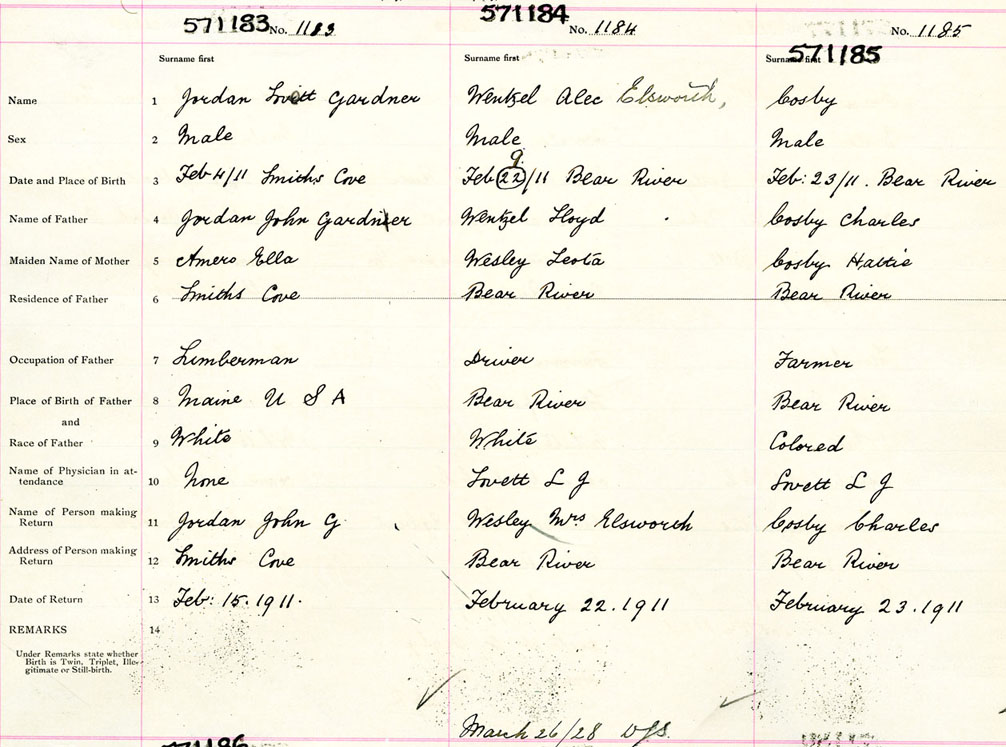 571183 No. 1183 571184 No. 1184 571185 No. 1185
Surname first Surname first Surname first
Name 1 Jordan Lovett Gardner Wentzel Alec Elsworth, Cosby
Sex 2 Male Male Male
9
Date and Place of Birth 3 Feb 4/11 Smiths Cove Feb 22/11 Bear River Feb: 23/11. Bear River
Name of Father 4 Jordan John Gardner Wentzel Lloyd Cosby Charles
Maiden Name of Mother 5 Amero Ella Wesley Leota Cosby Hattie
Residence of Father 6 Smiths Cove Bear River Bear River
Occupation of Father 7 Lumberman Driver Farmer
Place of Birth of Father 8 Maine U S A Bear River Bear River
and
Race of Father 9 White White Colored
Name of Physician in at-
tendance 10 None Lovett L J Lovett L J
Name of Person making
Return 11 Jordan John G Wesley Mrs Elsworth Cosby Charles
Address of Person making
Return 12 Smiths Cove Bear River Bear River
Date of Return 13 Feb: 15.1911. February 22.1911 February 23.1911
REMARKS 14
Under Remarks state whether
Birth is Twin, Triplet, Ille-
gitimate or Still-birth.
March 26/28
571186